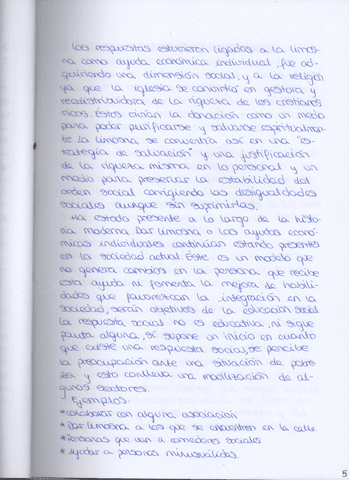 Las respuestas estuvieron ligadas a la limos-
na como ayuda económica individual, fue ad-
quiriendo una dimensión social, y a la religión
ya que la iglesia se convirtió en gestora y
redistribuidora de la riqueza de los cristianos
ricos. Éstos vivían la donación como un medio
para poder purificarse y salvarse espiritualmen-
te. La limosna se convertía así en una "es-
trategia de salvación" y una justificación
de la riqueza misma en lo personal y un
medio para preservar la estabilidad del
orden social corrigiendo las desigualdades
sociales aunque sin suprimirlas.
Ha estado presente a lo largo de la histo
ria moderna. Dar limosna o las ayudas econó-
micas individuales continúan estando presentes
en la sociedad actual. Éste es un modelo que
no genera cambios en la persona que recibe
esta ayuda ni fomenta la mejora de habili-
dades que favorezcan la integración en la
sociedad, serán objetivos de la educación social.
La respuesta social no es educativa, ni sigue
pauta alguna, sí supone un inicio en cuanto
que existe una respuesta social, se percibe
la preocupación ante una situación de pobre
za y esto conlleva una movilización de al-
gunos sectores.
Ejemplos:
*Colaborar con alguna asociación
* Dar limosna a los que se encuentren en la calle.
*Personas que van a comedores sociales
* Ayudar a personas minusválidas.
5